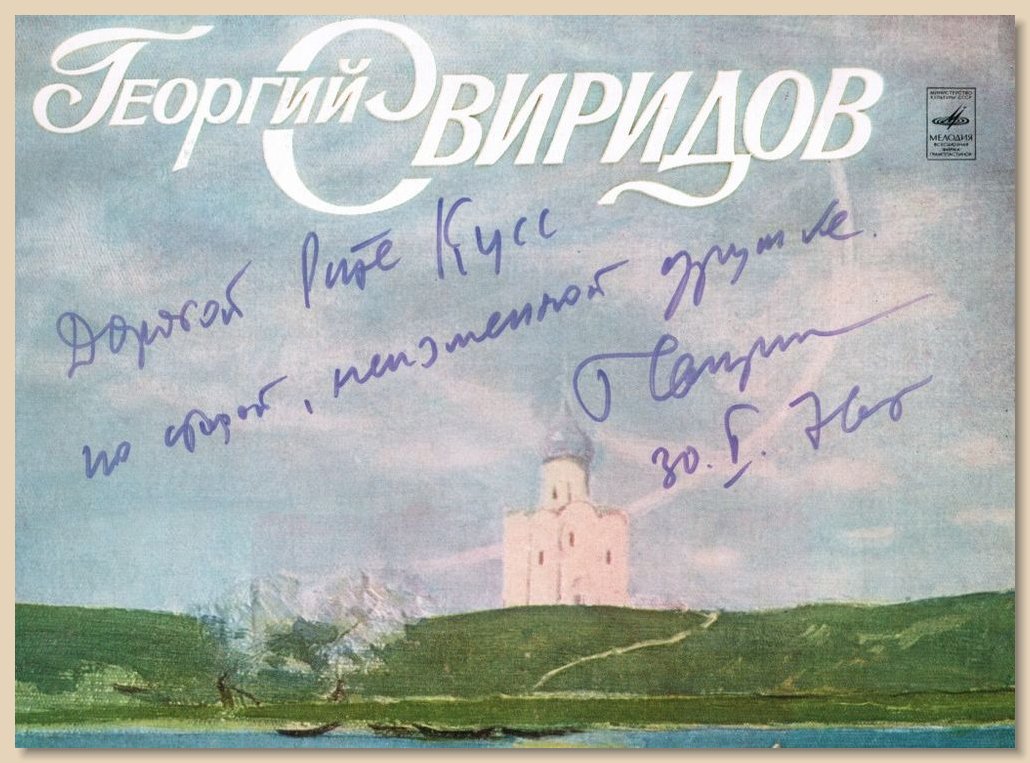 Георгий Свиридов
МИНИСТЕРСТВО
КУЛЬТУРЫ СССР
МЕЛОДИЯ
ВСЕСОЮЗНАЯ
ФИРМА
ГРАМПЛАСТИНОК
Дорогой Рите Кусс
по старой, неизменной дружбе.
Г Свирид
30. V. 76г